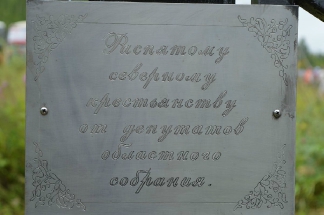 Распятому
северному
крестьянству
от депутатов
областного
собрания.